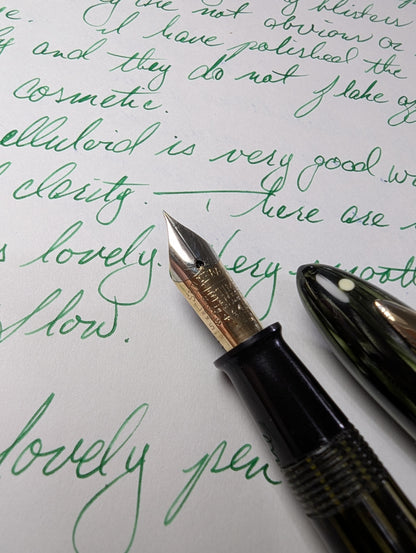 are not obvious or
blisters
I have polished the
and they do not flake
cosmetic.
celluloid is very good w
clarity. There are
s lovely. Very smooth
flow.
lovely pen